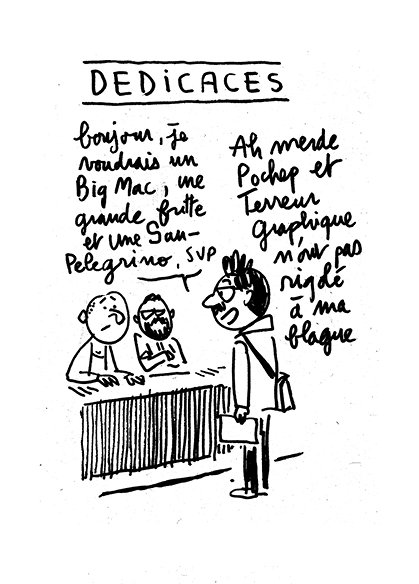 DEDICACES
bonjour, je
voudrais un
Big Mac, une
grande fritte
et une San-
Pelegrino, SVP
Ah merde
Pochep et
Terreur
Graphique
n'ont pas
rigolé
à ma
blague